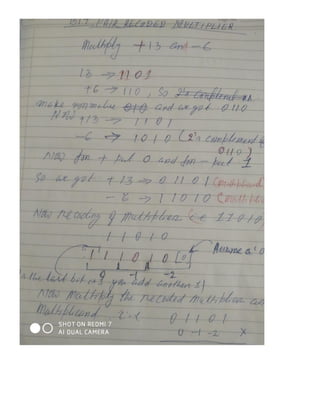 BIT PAIR RECODED MULTIPLIER
Multiply +13 and -6
13 → 1101
+6 → 110, So 2's complement
make and we got 0110
Now +13 → 1101
-6 → 1010 (2's complement of
0110)
Now for + put 0 and for - put 1
So we got +13 → 01101 (multiplicand
-6 → 11010 (multiplier
Now recoding of Multiplier i.e 11010
1 1 0 1 0
1 1 1 0 1 0 0 Assume a '0
0 -1 -2
the last bit is 1 you add another 1)
Now Multiply the recoded multiplier
Multiplicand i.e 0 1 1 0 1
0 -1 -2 x
SHOT ON REDMI 7
AI DUAL CAMERA